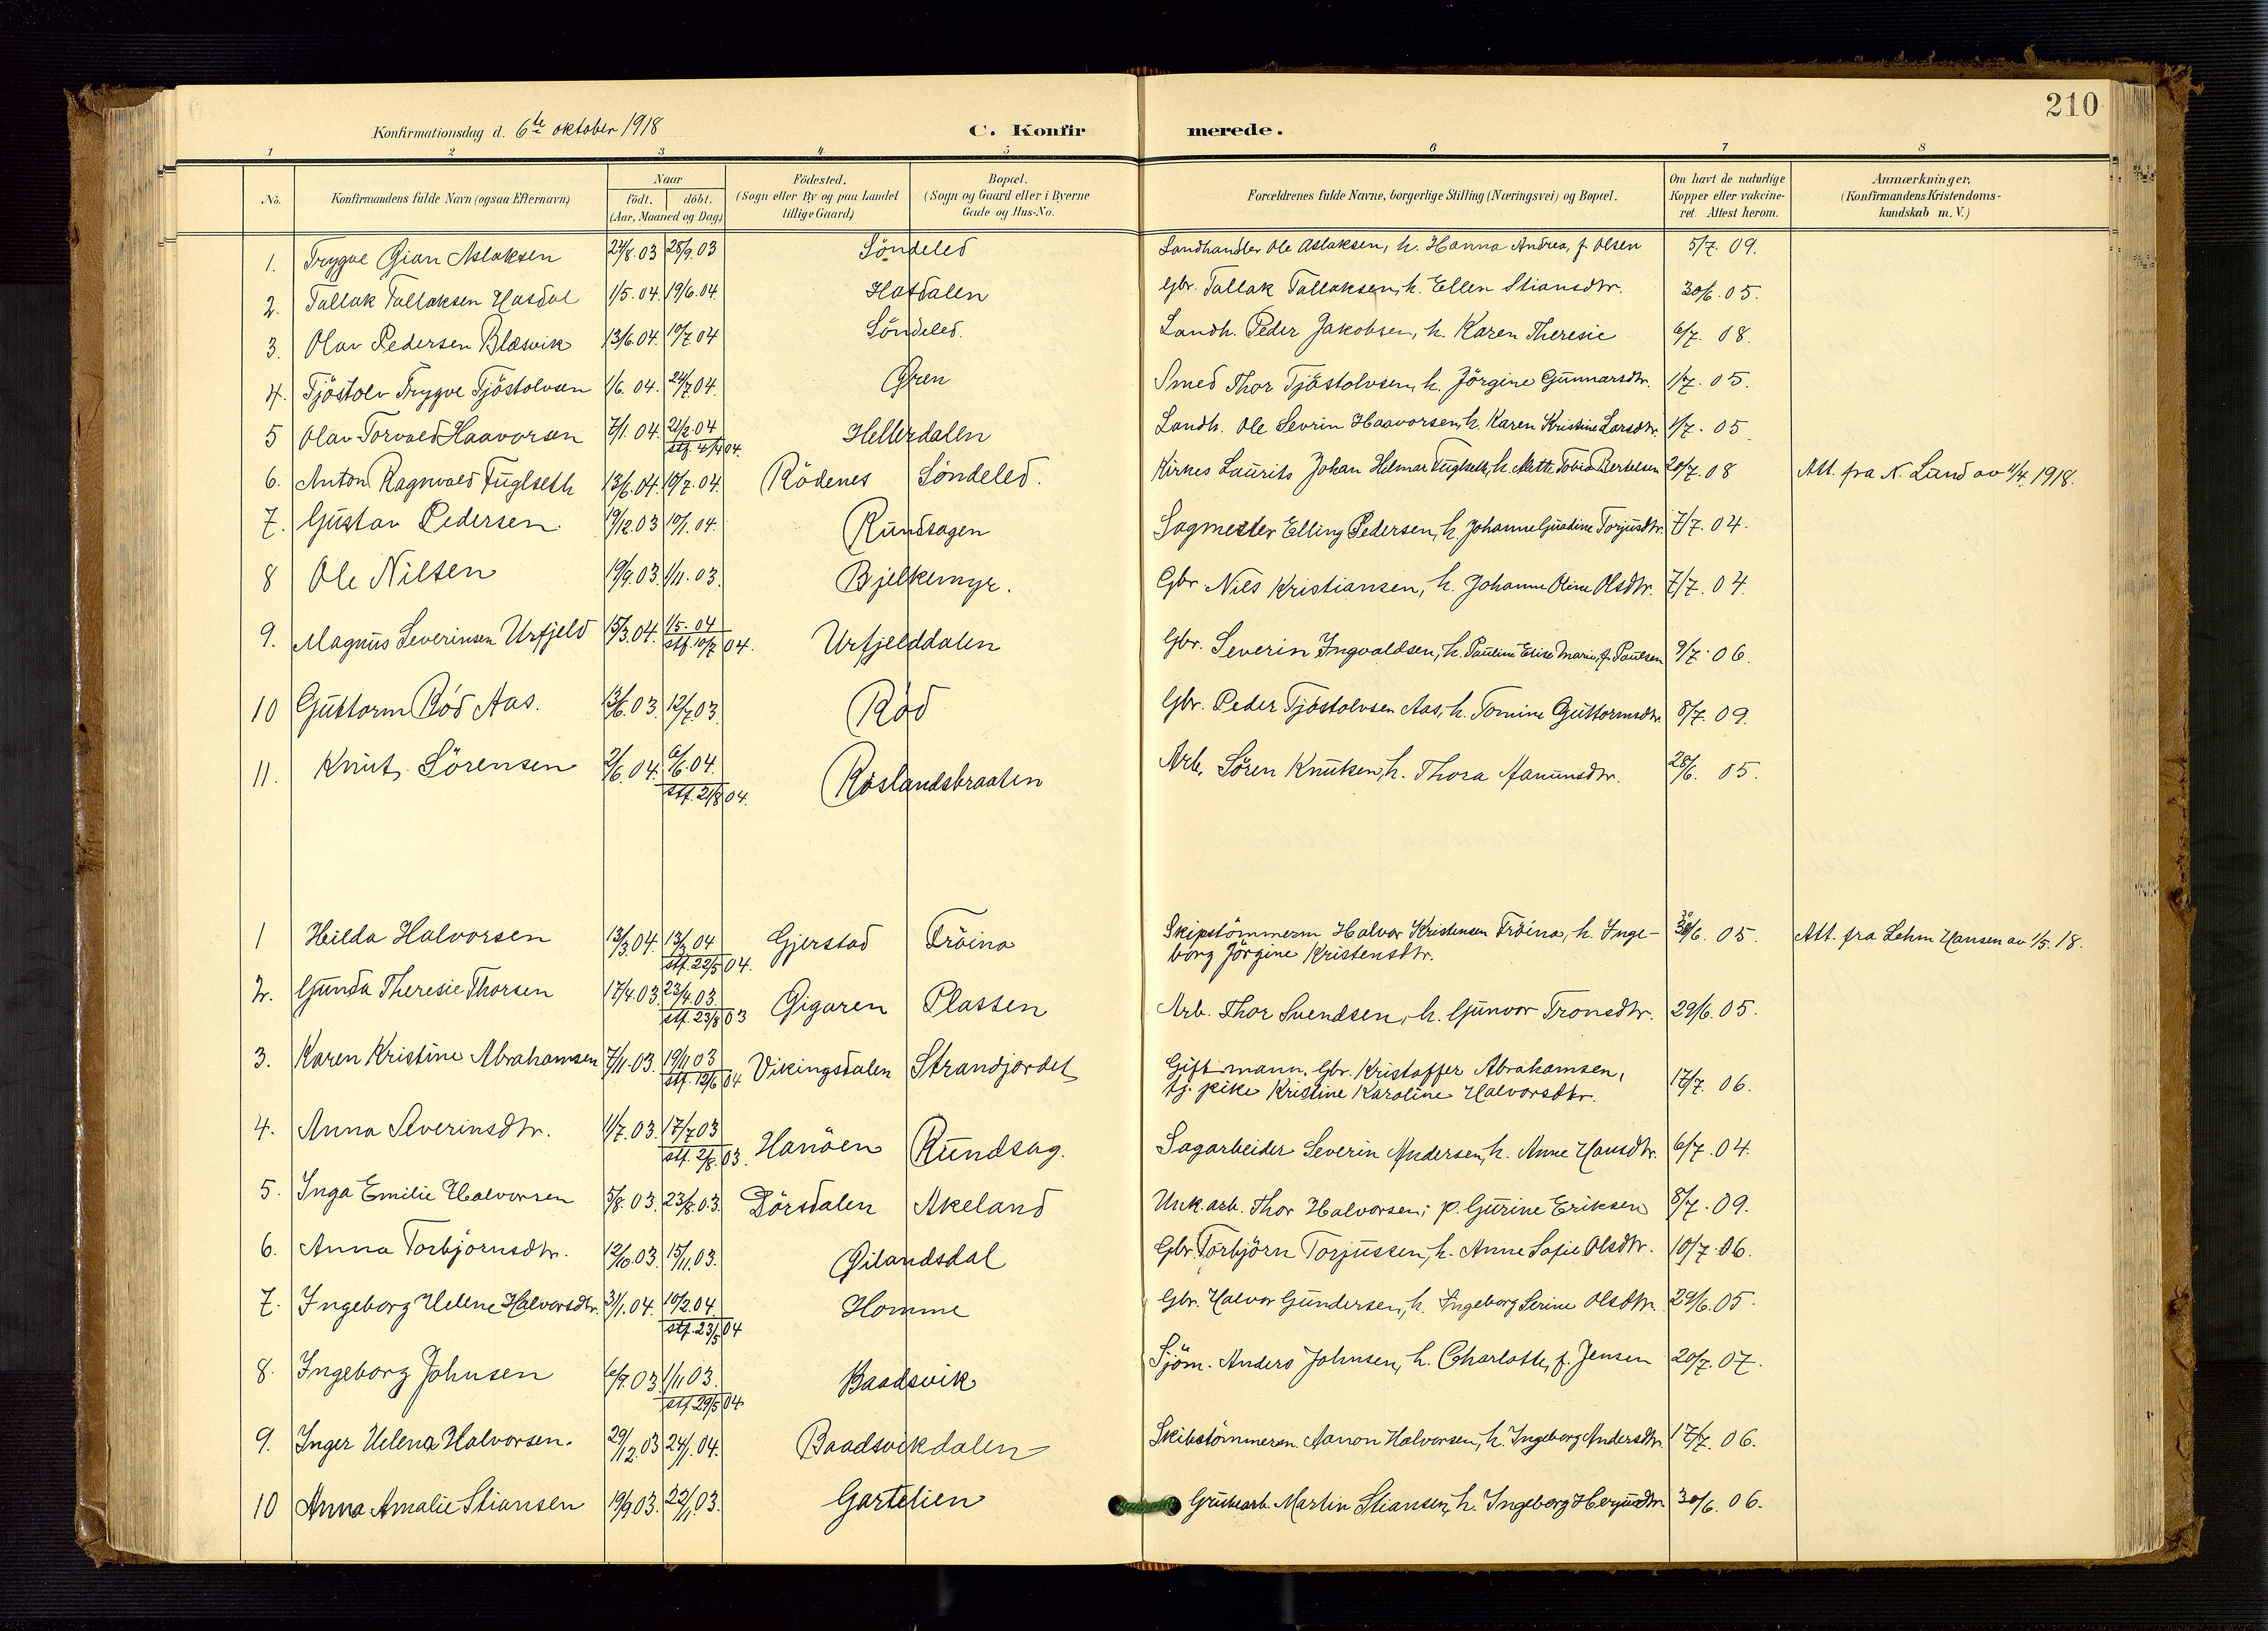 210
Konfirmationsdag d. 6te oktober 1918 C. Konfir merede.
1 2 3 4 5 6 7 8
No. Konfirmandens fulde Navn (ogsaa Efternavn) Naar födt. döbt. (Aar, Maaned og Dag) Födested. (Sogn eller By og paa Landet tillige Gaard) Bopæl. (Sogn og Gaard eller i Byerne Gade og Hus-No. Forældrenes fulde Navne, borgerlige Stilling (Næringsvei) og Bopæl. Om havt de naturlige Kopper eller vakcineret. Attest herom. Anmærkninger. (Konfirmandens Kristendomskundskab m. V.)
1. Trygve Gian Aslaksen 24/8.03 28/9.03 Söndeled Landhandler Ole Aslaksen, h. Hanna Andrea, f. Olsen 5/7. 09.
2. Tallak Tallaksen Hasdal 1/5.04. 19/6.04. Hasdalen Gbr. Tallak Tallaksen, h. Ellen Stiansdtr. 30/6.05.
3. Olav Pedersen Blæsvik 13/6.04. 10/7 04 Söndeled. Landh. Peder Jakobsen, h. Karen Theresie 6/7. 08.
4. Tjöstolv Trygve Tjöstolvsen 1/6. 04. 24/7.04. Gren Smed Thor Tjöstolvsen, h. Jörgine Gunnarsdtr. 1/7. 05.
5 Olav Torvald Haavorsen 7/1. 04. 21/2.04 stf. 4/4 04. Hellerdalen Landh. Ole Sevrin Haavorsen, h. Karen Kristine Larsdtr. 1/7. 05.
6. Anton Ragnvald Fuglseth 13/6.04. 10/7.04. Rödenes Söndeled. Kirkes. Laurits Johan Helmar Fuglseth, h. Mette Tobia Bertelsen 20/7.08 Att. fra N. Lund av 11/4.1918.
7. Gustav Pedersen. 19/12.03 10/1.04. Rundsagen Sagmester Elling Pedersen, h. Johanne Gundine Torjusdtr. 7/7.04.
8 Ole Nilsen 19/9.03. 1/11.03. Bjelkemyr. Gbr. Nils Kristiansen, h. Johanne Oline Olsdtr. 7/7.04.
9. Magnus Severinsen Urfjeld 15/3.04. 1/5.04 stf. 10/7 04. Urfjelddalen Gbr. Severin Ingvaldsen, h. Pauline Elise Marie, f. Paulsen 9/7.06.
10 Guttorm Röd Aas. 13/6.03. 12/7.03. Röd Gbr. Peder Tjöstolvsen Aas, h. Tomine Guttormsdtr. 8/7.09.
11. Knut Sörensen 2/6.04. 6/6.04. stf. 21/8 04. Röslandsbraaten Arb. Sören Knutsen, h. Thora Aanunsdtr. 28/6. 05.
1 Hilda Halvorsen 13/3 04. 13/3 04 stf. 22/5 04. Gjerstad Fröina Skipstömmerm Halvor Kristensen Fröina, h. Inge-
borg Jörgine Kristensdtr. 30/6. 05. Att. fra Lehm Hansen av 1/5.18.
2. Gunda Theresie Thorsen 17/4.03. 23/4.03. stf. 23/8 03 Gigaren Plassen Arb. Thor Svendsen, h. Gunvor Tronsdtr. 29/6.05.
3. Karen Kristine Abrahamsen 7/11.03. 19/11 03 stf. 12/6 04 Vikingsdalen Strandjordet Gift mann. Gbr. Kristoffer Abrahamsen,
tj. pike Kristine Karoline Halvorsdtr. 17/7. 06.
4. Anna Severinsdtr. 11/7.03. 17/7 03 stf. 2/8. 03. Hanöen Rundsag. Sagarbeider Severin Andersen, h. Anne Hansdtr. 6/7.04.
5. Inga Emilie Halvorsen 5/8.03. 23/8.03. Dörsdalen Akeland Unk. arb. Thor Halvorsen; p. Gurine Eriksen 8/7.09.
6. Anna Torbjörnsdtr. 12/10.03. 15/11.03. Öilandsdal Gbr. Torbjörn Torjussen, h. Anne Sofie Olsdtr. 10/7.06.
7. Ingeborg Helene Halvorsdtr. 31/1.04. 10/2.04. stf. 23/5 04 Homme Gbr. Halvor Gundersen, h. Ingeborg Serine Olsdtr. 29/6.05.
8. Ingeborg Johnsen 6/9.03 1/11 03. stf 29/5 04 Baadsvik Sjöm. Anders Johnsen, h. Charlotte, f. Jensen 20/7.07.
9. Inger Helena Halvorsen. 29/12.03 24/1.04. Baadsvikdalen Skibstömmerm. Aanon Halvorsen, h. Ingeborg Andersdtr. 17/7. 06.
10 Anna Amalie Stiansen 19/9 03. 22/11.03. Gartelien Grubearb. Martin Stiansen, h. Ingeborg Herjusdtr. 30/6. 06.